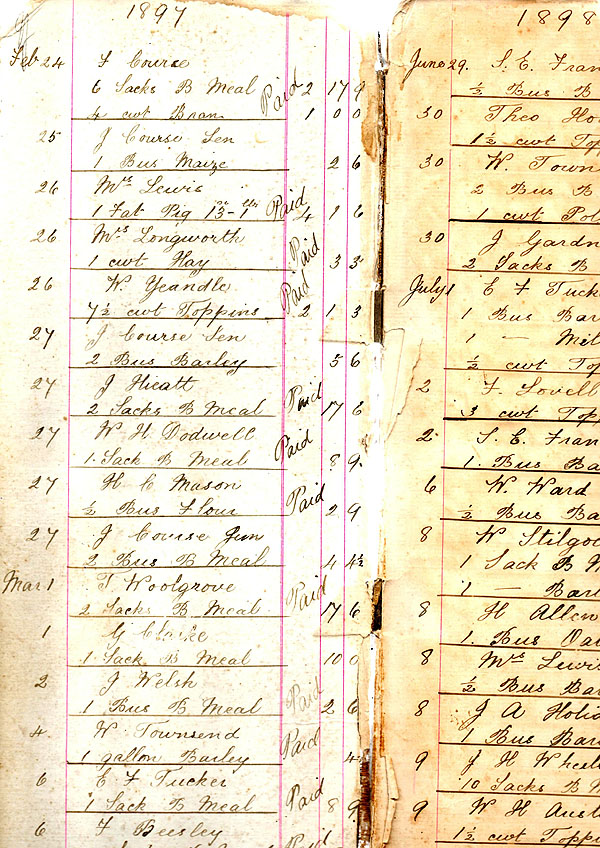 1897
Feb 24 F Course
6 Sacks B Meal Paid 2 17 9
4 cwt Bran 1 0 0
25 J Course Sen
1 Bus Maize 2 6
26 Mrs Lewis
1 Fat Pig 13-1 Paid 4 1 6
26 Mrs Longworth
1 cwt Hay Paid 3 3
26 W Yeandle
7½ cwt Toppins Paid 2 1 3
27 J Course Sen
2 Bus Barley 5 6
27 J Hieatt
2 Sacks B Meal Paid 17 6
27 W H Dodwell
1 Sack B Meal Paid 8 9
27 H C Mason
½ Bus Flour Paid 2 9
27 J Course Jun
2 Bus B Meal 4 4½
Mar 1 T Woolgrove
2 Sacks B Meal Paid 17 6
1 G Clarke
1 Sack B Meal 10 0
2 J Welsh
1 Bus B Meal Paid 2 6
4 W Townsend
1 gallon Barley Paid 4
6 E F Tucker
1 Sack B Meal Paid 8 9
6 F Beesley
Paid
1898
June 29. S. E. Fran
½ Bus B
30 Theo Ho
1½ cwt Top
30 W. Town
2 Bus B
1 cwt Pol
30 J Gardn
2 Sacks B
July 1 E F Tuck
1 Bus Bar
1 — Mil
½ cwt Top
2 F. Lovell
3 cwt Top
2 S. E. Fran
1. Bus Ba
6 W. Ward
½ Bus Ba
8 W Stilgo
1 Sack B M
1 — Barl
8 H Allen
1. Bus Oa
8 Mrs Lewis
½ Bus Ba
8 J A Holid
1 Bus Bar
9 J H Wheel
10 Sacks B M
9 W H Aust
1½ cwt Toppin